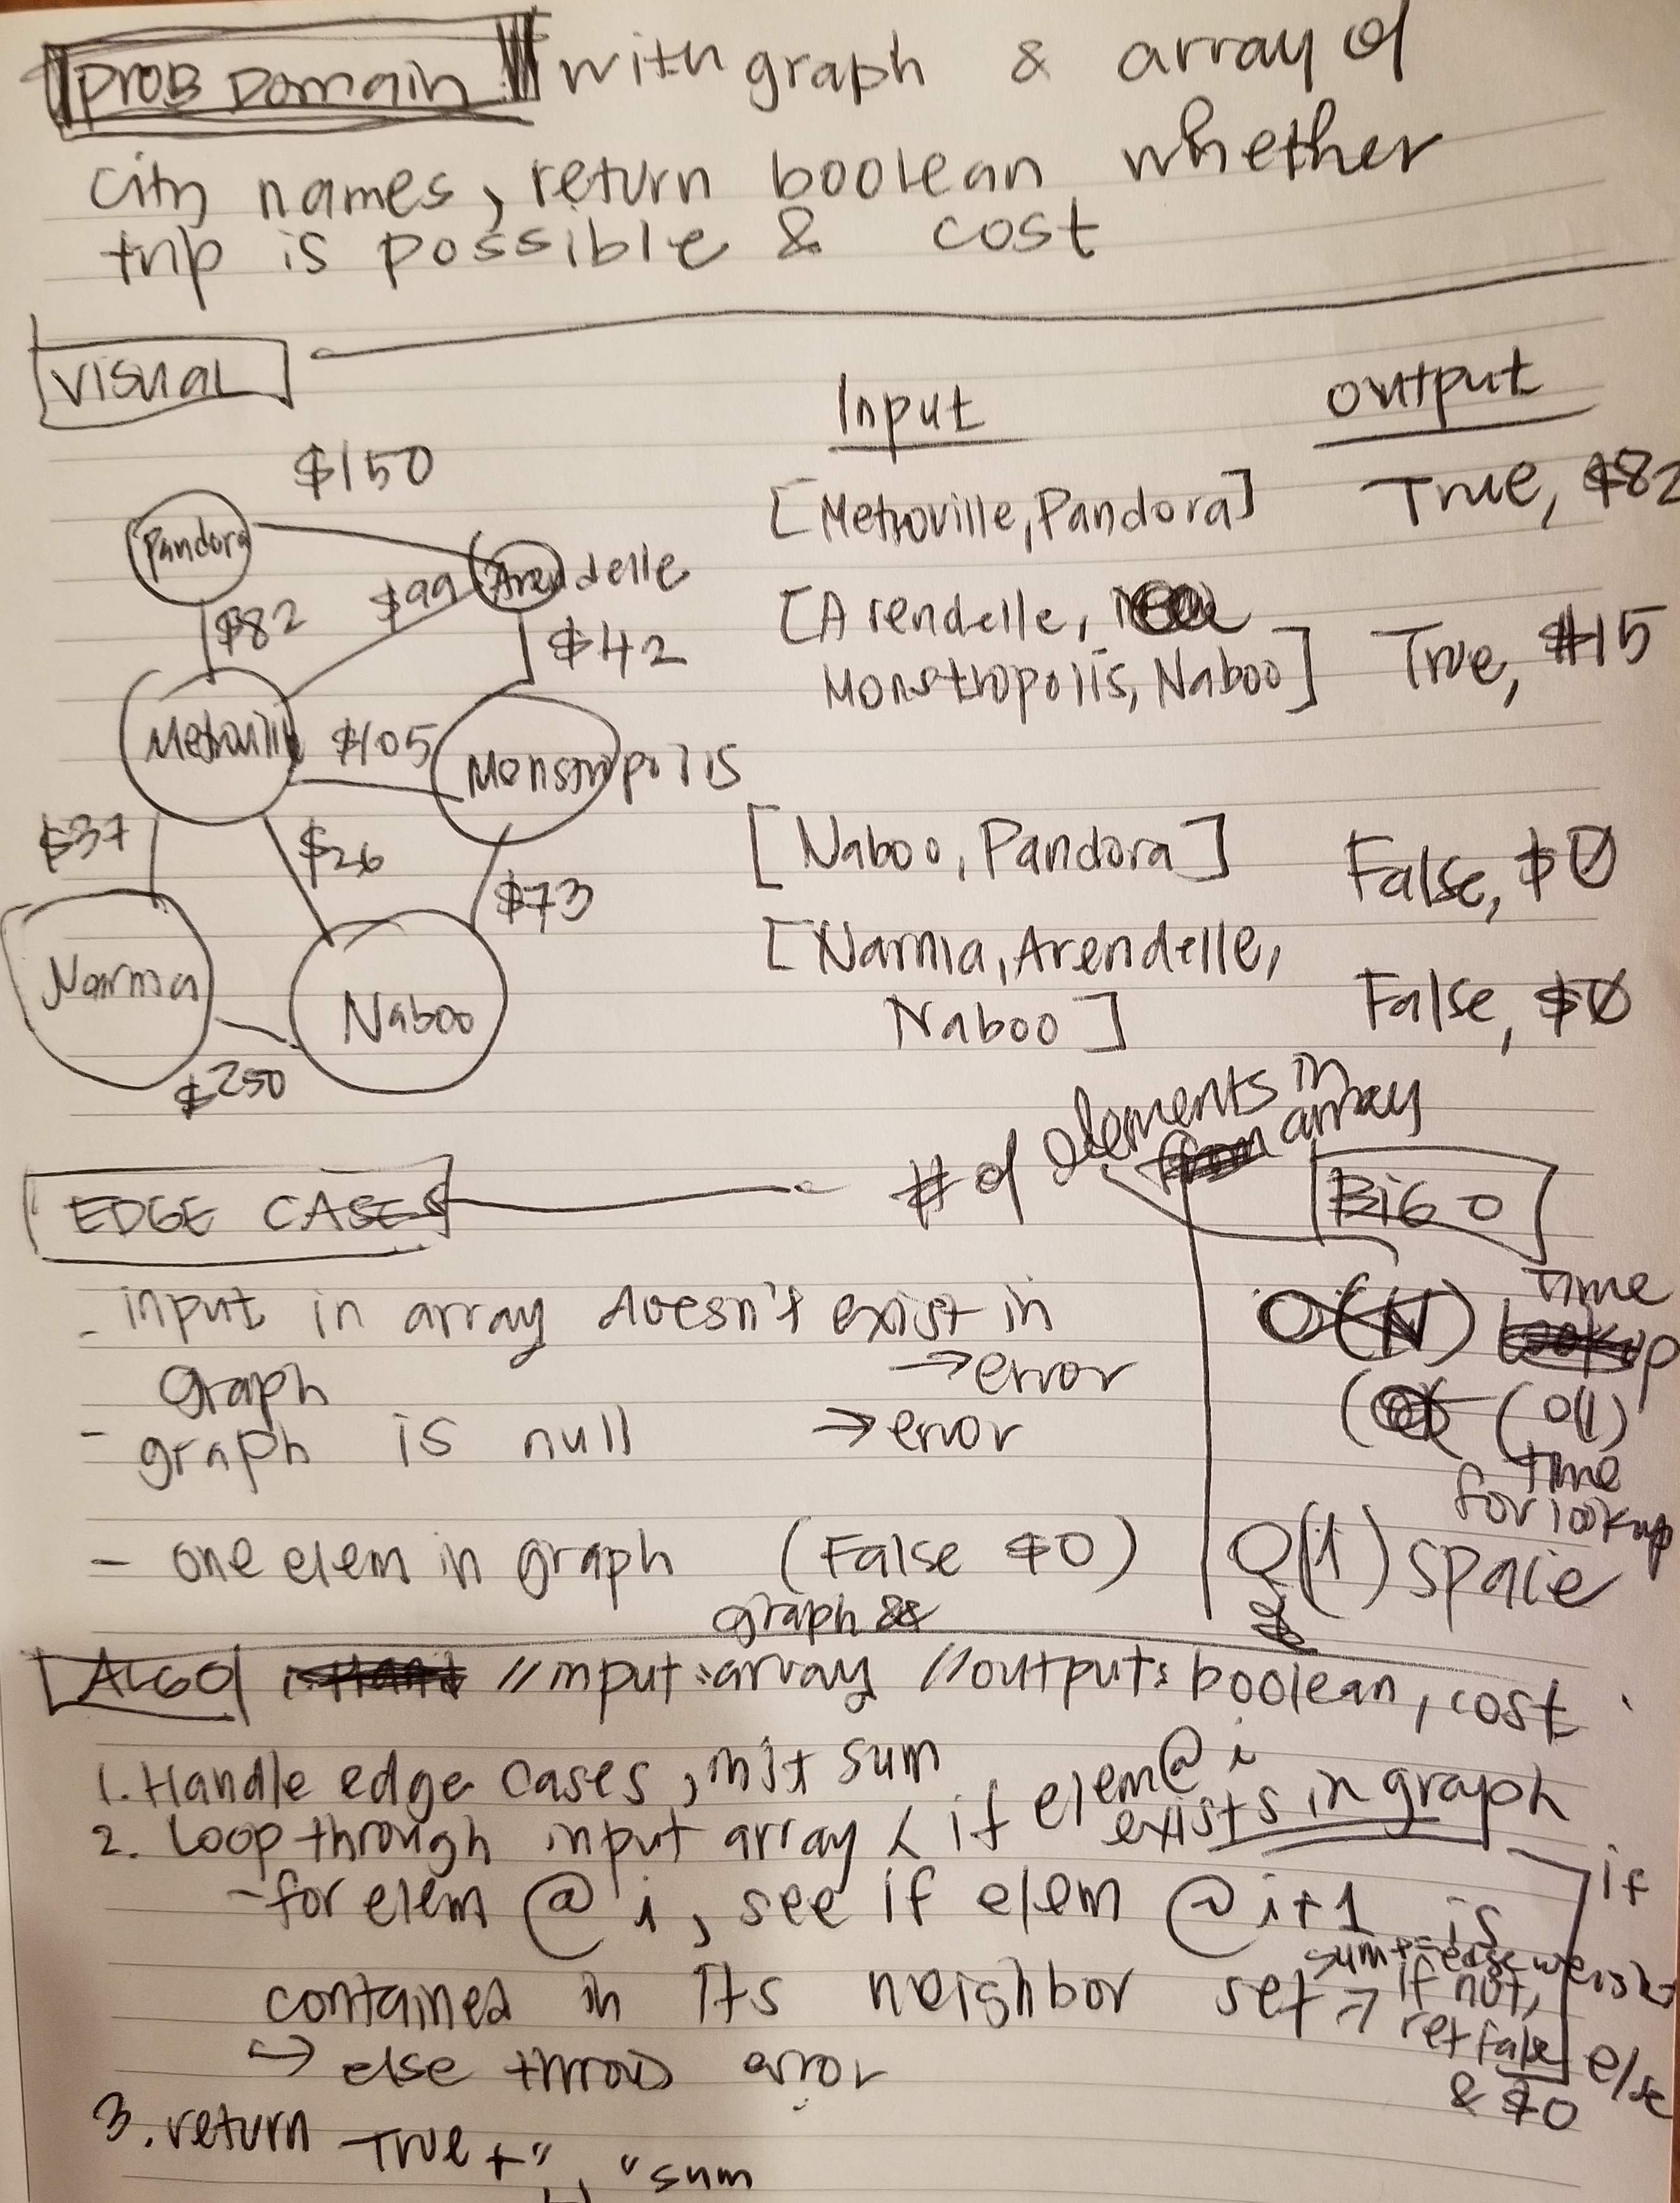 PROB Domain with graph & array of
city names, return boolean whether
trip is possible & cost
VISUAL
Input
output
$150
Pandora
Arendelle
$99
$82
$42
Metroville
$105
Monstropolis
$37
$26
$73
Narnia
Naboo
$250
[Metroville, Pandora] True, $82
[Arendelle,
Monstropolis, Naboo] True, $115
[Naboo, Pandora] False, $0
[Narnia, Arendelle,
Naboo] False, $0
# of elements in
array
EDGE CASES
BIG O
- input in array doesn't exist in
graph → error
- graph is null → error
- one elem in graph (False $0)
O(N) time
(O(1)
time
for lookup
O(1) space
graph &
ALGO //input: array //output: boolean, cost
1. Handle edge cases, init sum
2. Loop through input array & if elem @ i
exists in graph
- for elem @ i, see if elem @ i+1 is
contained in its neighbor set →
sum += edge weight
if not,
ret false
& $0
if
else
↪ else throw error
3. return True + ", " sum